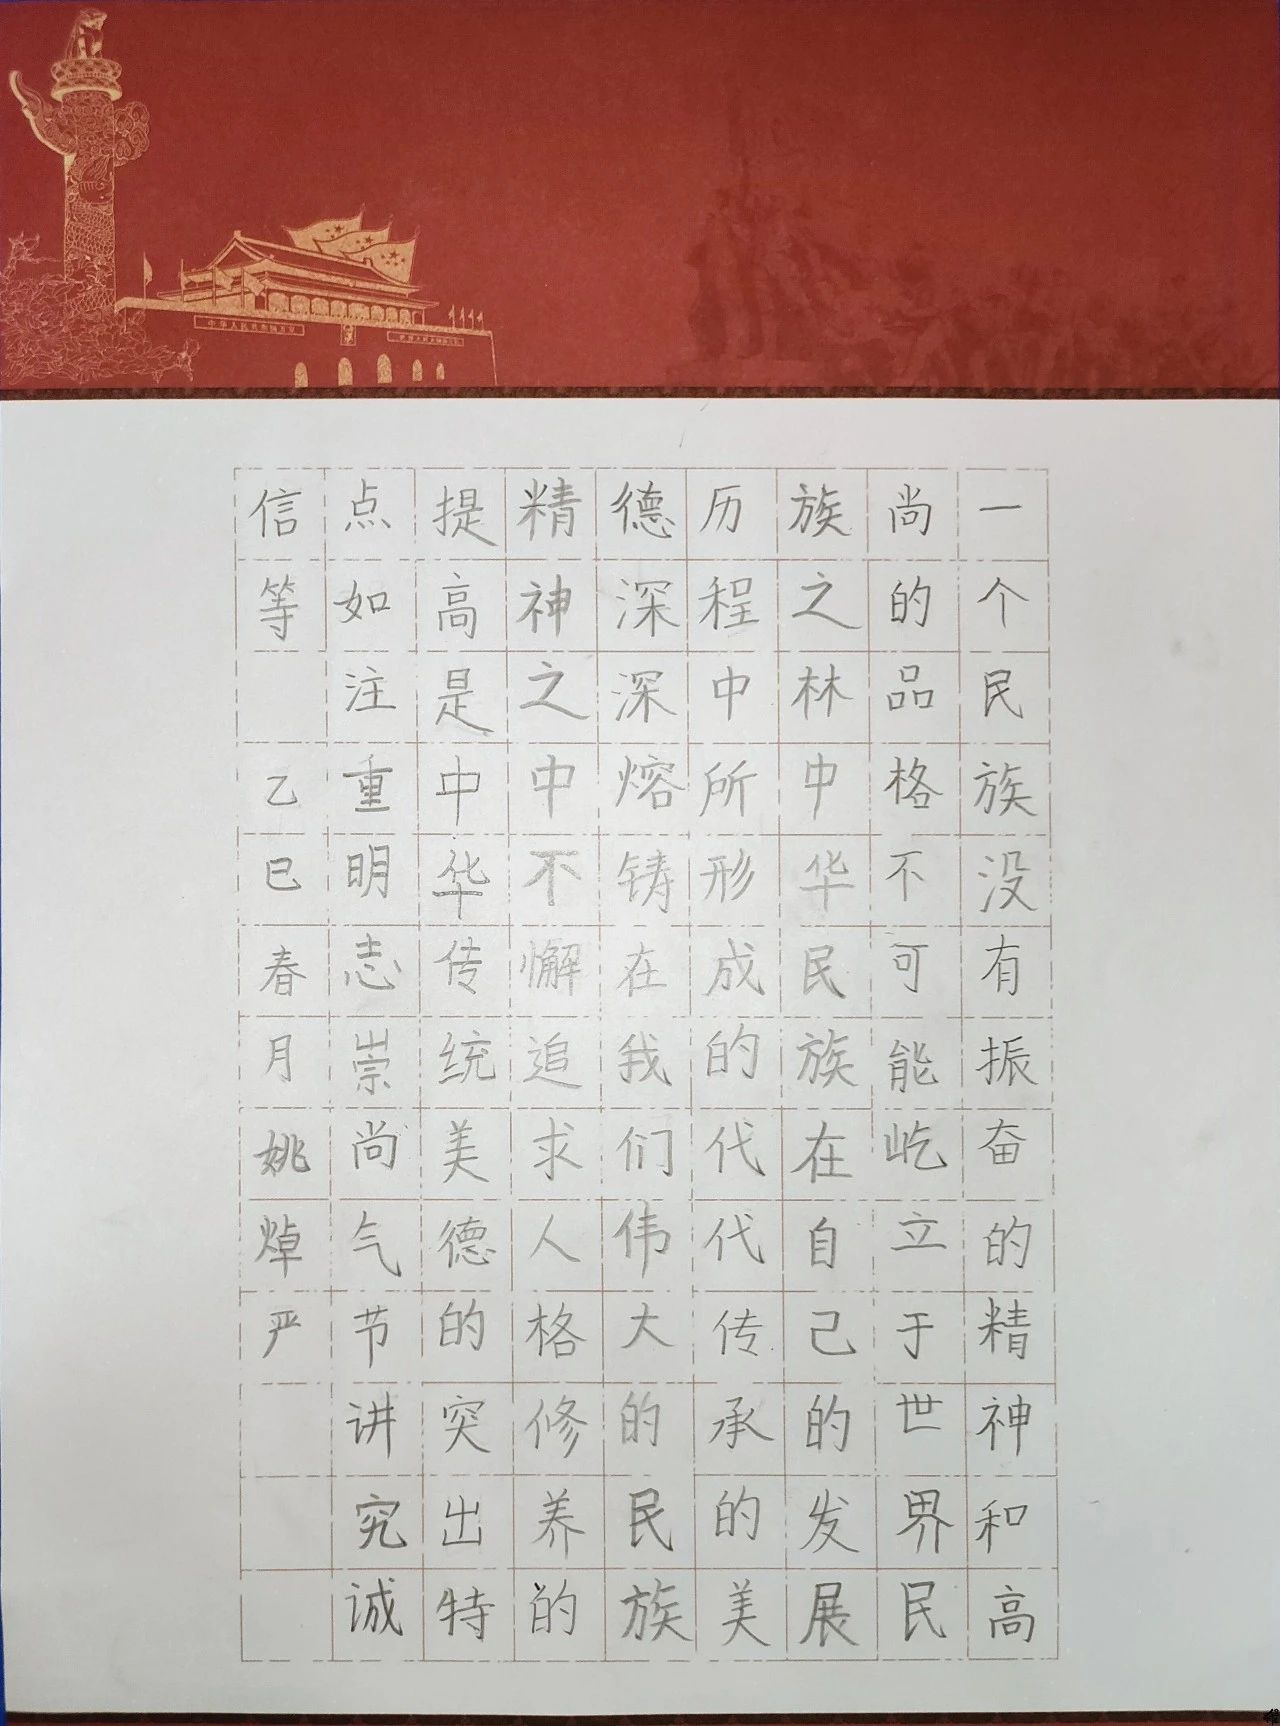 一个民族没有振奋的精神和高
尚的品格不可能屹立于世界民
族之林中华民族在自己的发展
历程中所形成的代代传承的美
德深深熔铸在我们伟大的民族
精神之中不懈追求人格修养的
提高是中华传统美德的突出特
点如注重明志崇尚气节讲究诚
信等 乙巳春月姚焯严